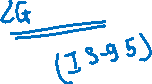 2G
(IS-95)